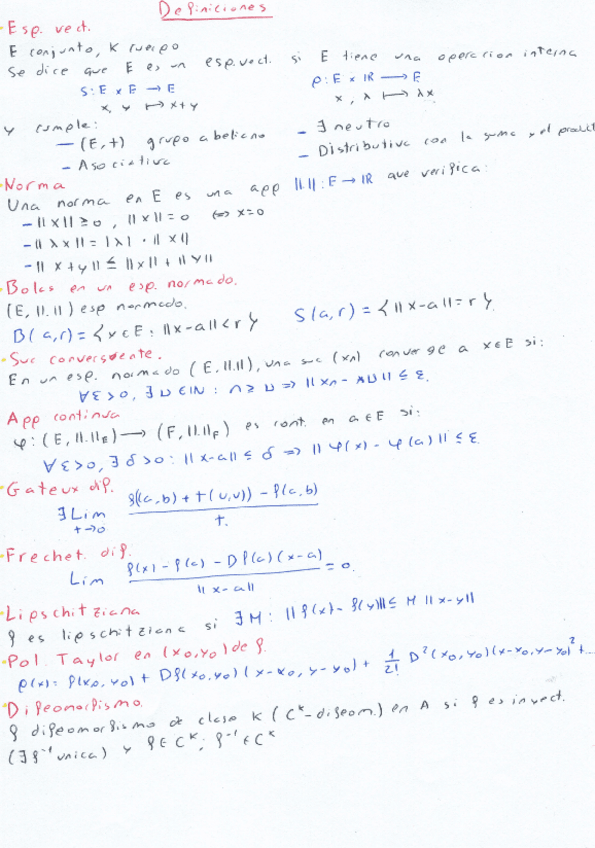 Definiciones
Esp. vect.
E conjunto, K cuerpo
Se dice que E es un esp. vect. si E tiene una operacion interna
S: E x E → E
ρ: E x IR → E
x, y ↦ x+y
x, λ ↦ λx
y cumple:
- (E, +) grupo abeliano
- ∃ neutro
- Asociativa
- Distributiva con la suma y el product
Norma
Una norma en E es una app ||.||: E → IR que verifica:
- ||x|| ≥ 0, ||x|| = 0 ⇔ x=0
- ||λx|| = |λ| · ||x||
- ||x+y|| ≤ ||x|| + ||y||
Bolas en un esp. normado.
(E, ||.||) esp normado.
B(a,r) = {x∈E: ||x-a|| < r}
S(a,r) = {||x-a|| = r}
Suc convergente.
En un esp. normado (E, ||.||), una suc (xn) converge a x∈E si:
∀ε>0, ∃ N∈IN : n ≥ N ⇒ ||xn - x|| ≤ ε.
App continua
φ: (E, ||.||E) → (F, ||.||F) es cont. en a∈E si:
∀ε>0, ∃δ>0: ||x-a|| ≤ δ ⇒ ||φ(x) - φ(a)|| ≤ ε.
Gateux dif.
∃ Lim t→0 f((a,b)+t(u,v)) - f(a,b) / t.
Frechet. dif.
Lim f(x) - f(a) - Df(a)(x-a) / ||x-a|| = 0.
Lipschitziana
f es lipschitziana si ∃M: ||f(x) - f(y)|| ≤ M ||x-y||
Pol. Taylor en (x0,y0) de f.
P(x) = f(x0,y0) + Df(x0,y0)(x-x0, y-y0) + 1/2! D²(x0,y0)(x-x0, y-y0)² + ...
Difeomorfismo.
f difeomorfismo de clase K (C^k-difeom.) en A si f es inyect.
(∃ f⁻¹ unica) y f∈C^k; f⁻¹∈C^k